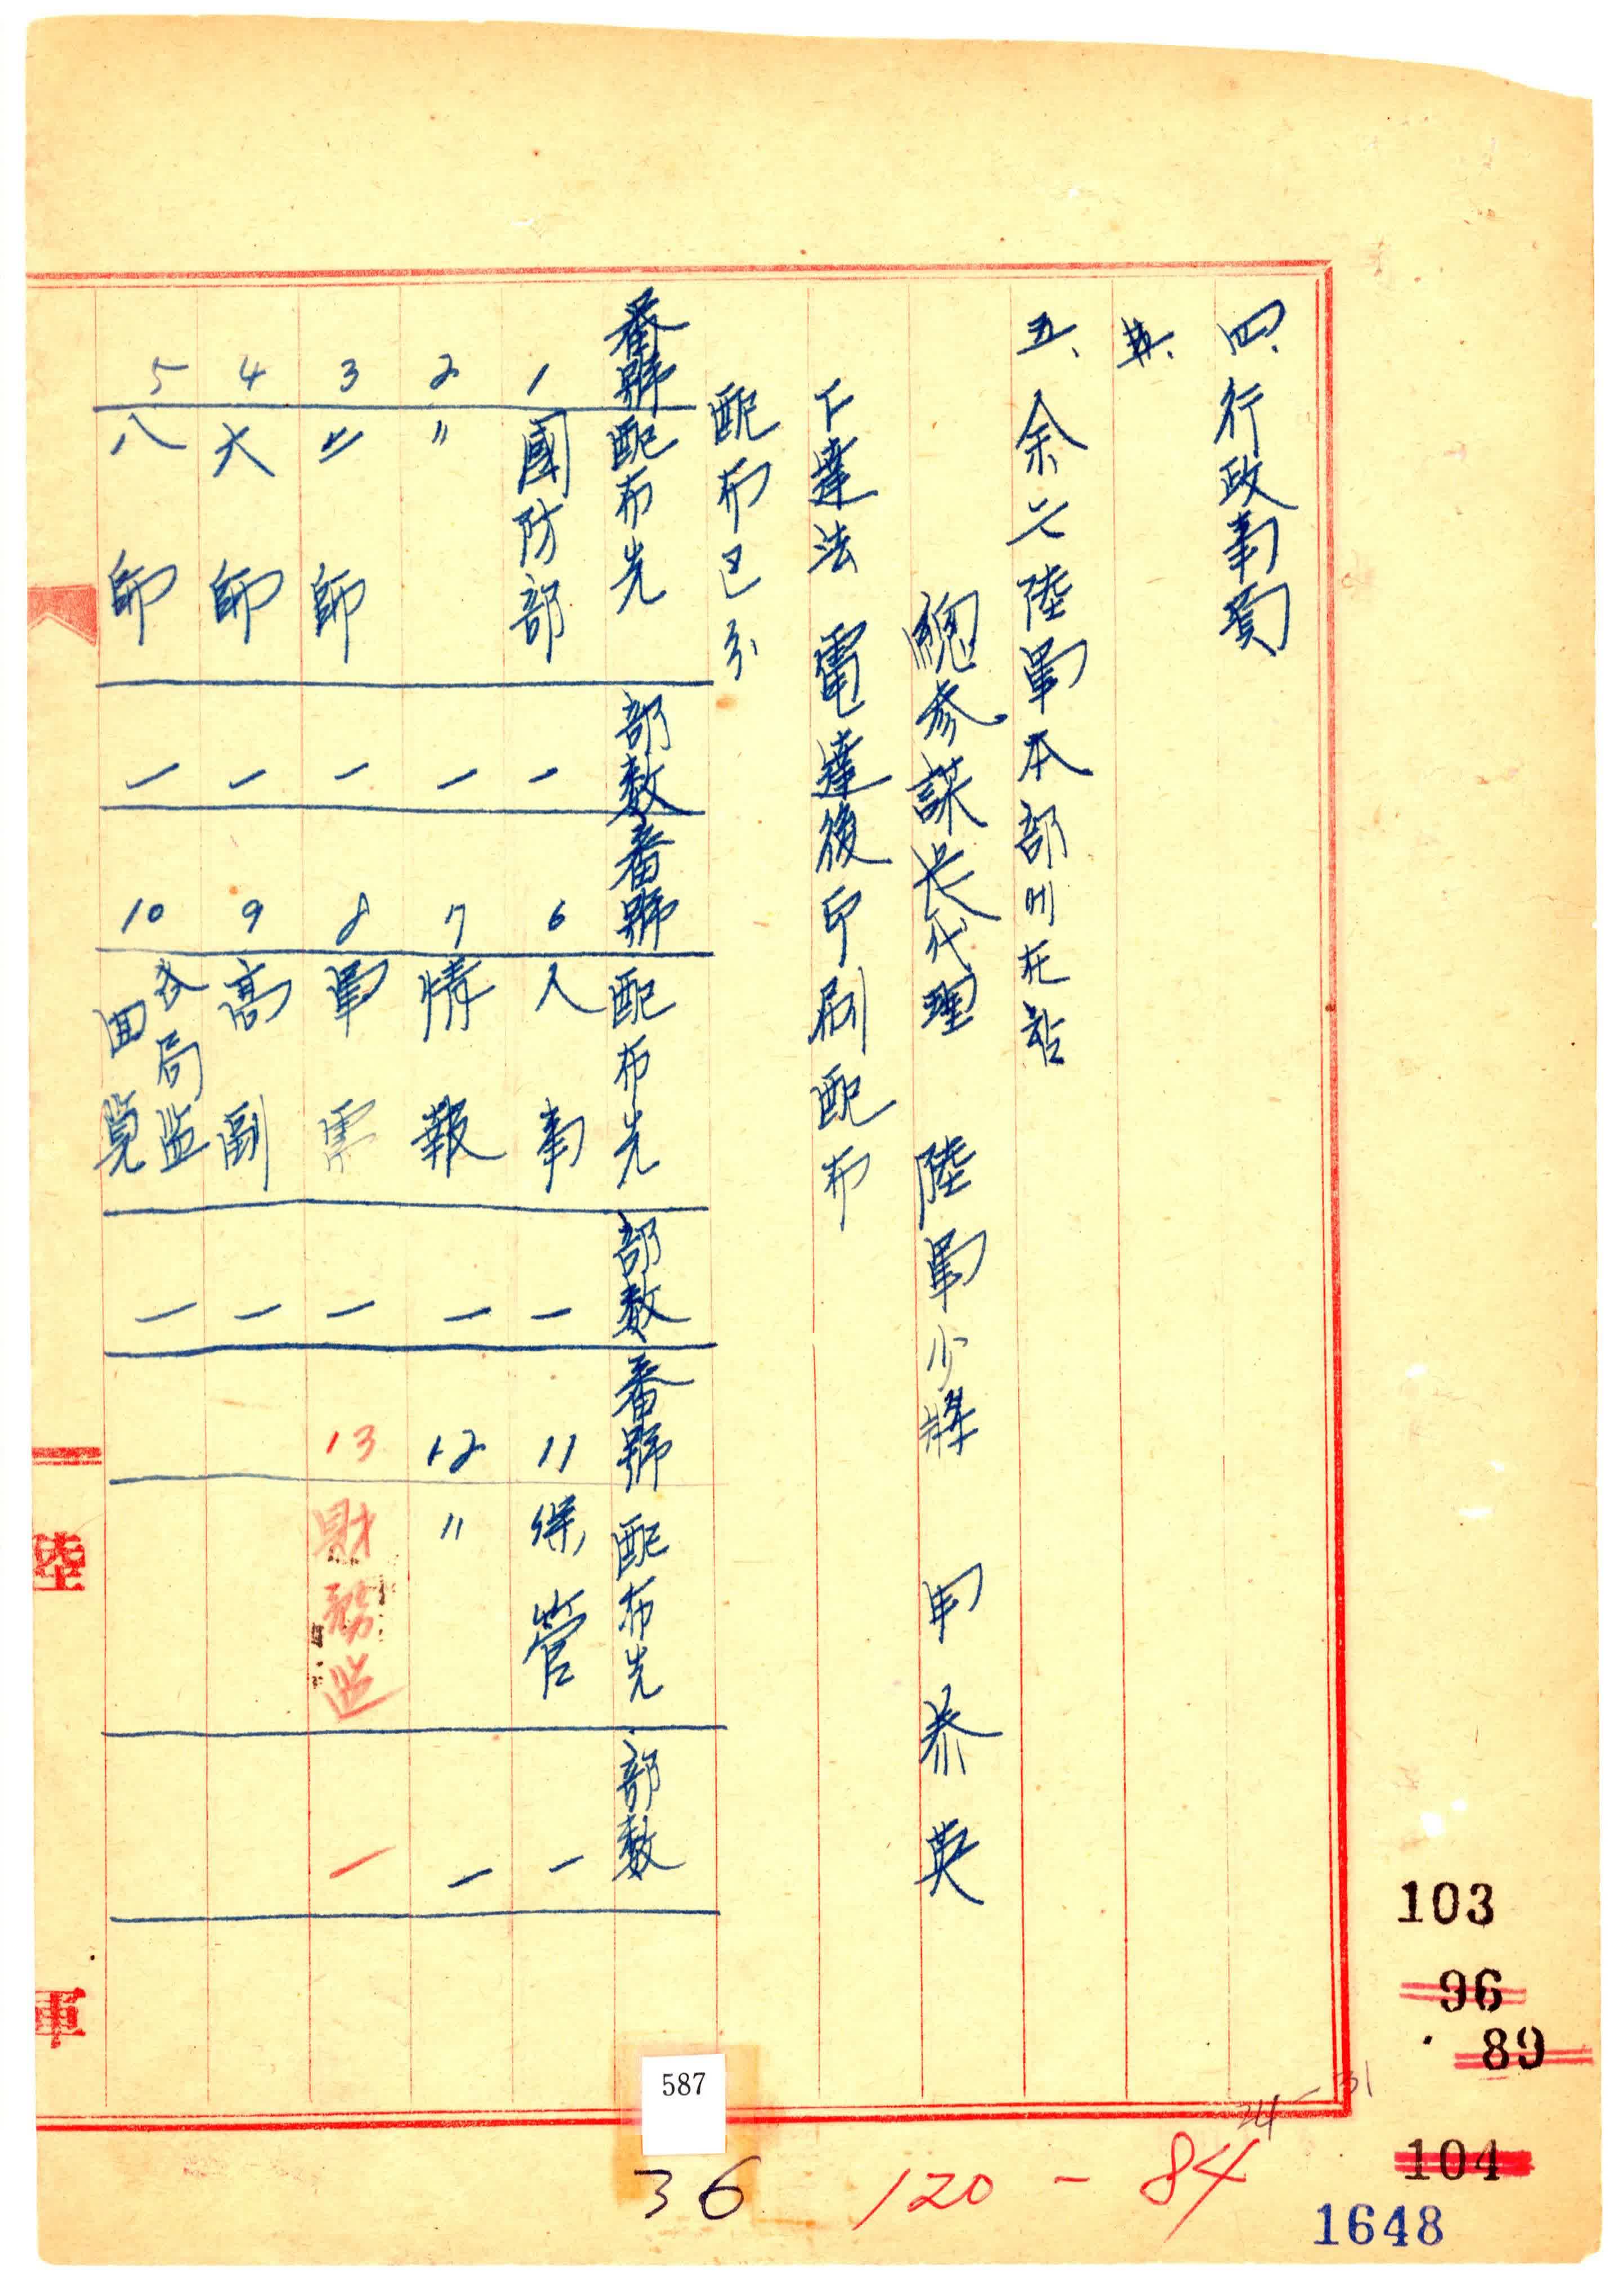 四. 行政事項
無.
五、余는陸軍本部에在함
總參謀長代理 陸軍少將 申泰英
下達法 電達後印刷配布
配布区分
番號 配布先 部数 番號 配布先 部数 番號 配布先 部数
1 國防部 一 6 人事 一 11 保管 一
2 〃 一 7 情報 一 12 〃 一
3 二師 一 8 軍需 一 13 財務監 一
4 六師 一 9 高副 一
5 八師 一 10 各局監回覧 一
陸
軍
103
96
89
104
1648
24-31
120-84
36
587